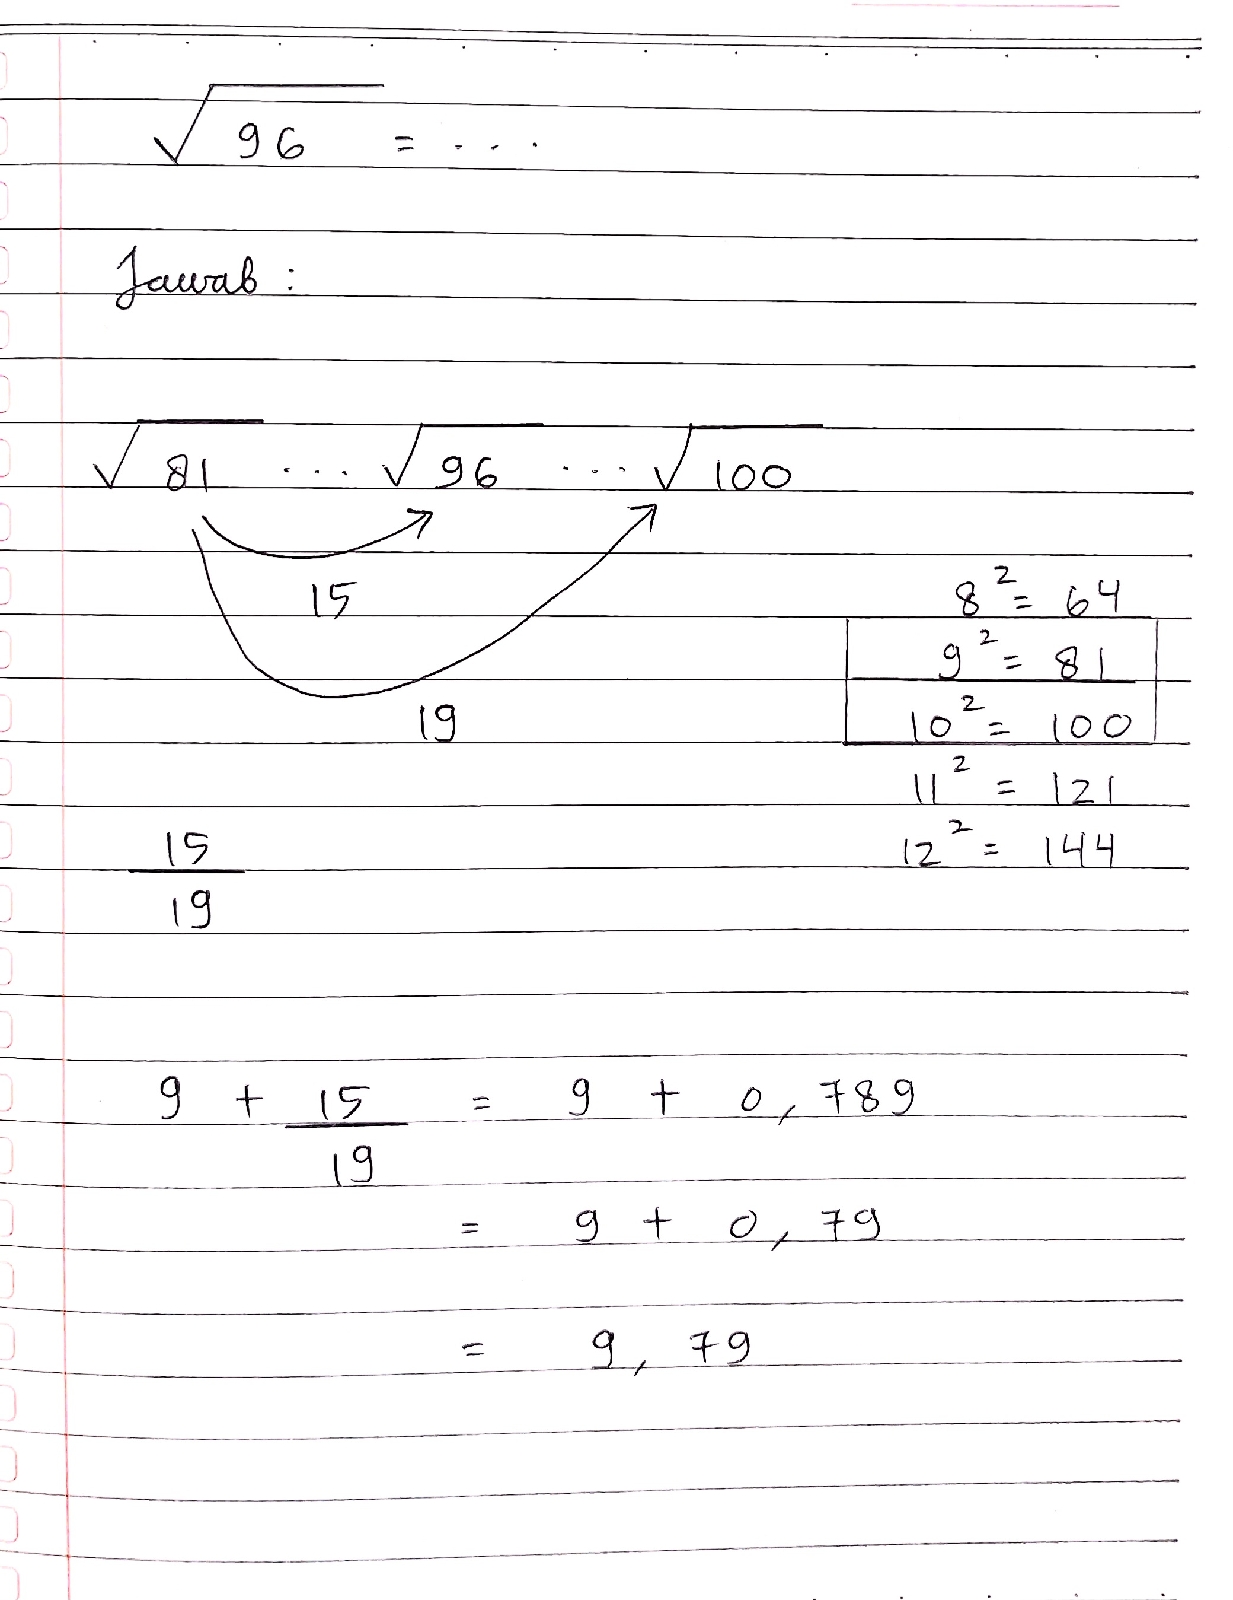 √96 = ...
Jawab :
√81 ... √96 ... √100
15
19
8² = 64
9² = 81
10² = 100
11² = 121
12² = 144
15
19
9 + 15/19 = 9 + 0,789
= 9 + 0,79
= 9,79